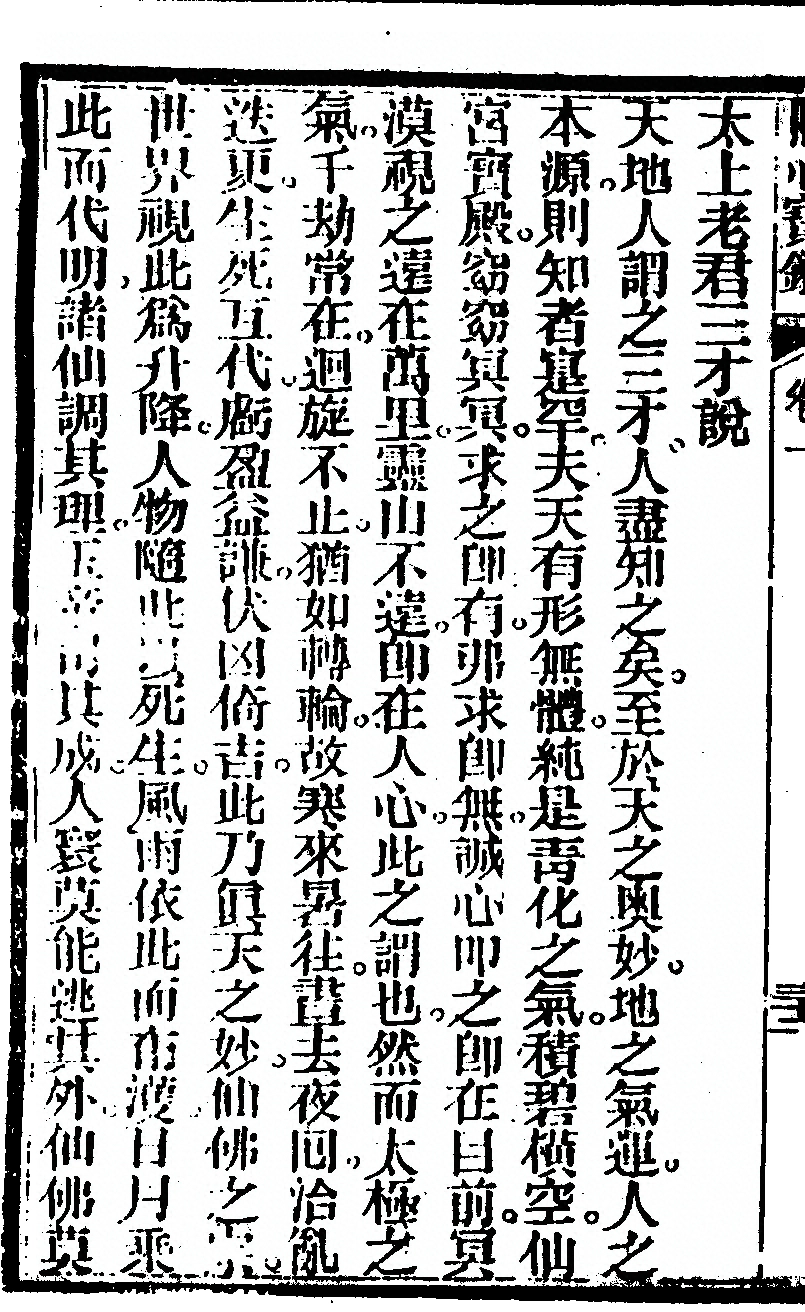 太上老君三才說
天地人謂之三才人盡知之矣至於天之奧妙地之氣運人之
本源則知者寔罕夫天有形無體純是靑化之氣積碧橫空仙
宮寶殿窈窈冥冥求之卽有弗求卽無誠心叩之卽在目前冥
漠視之遠在萬里靈山不遠卽在人心此之謂也然而太極之
氣千劫常在迴旋不止猶如轉輪故寒來暑往晝去夜回治亂
迭更生死互代虧盈益謙伏凶倚吉此乃眞天之妙仙佛之
世界視此爲升降人物隨此死生風雨依此而布濩日月乘
此而代明諸仙調其理其成人寰莫能逃其外仙佛莫
心寶
一